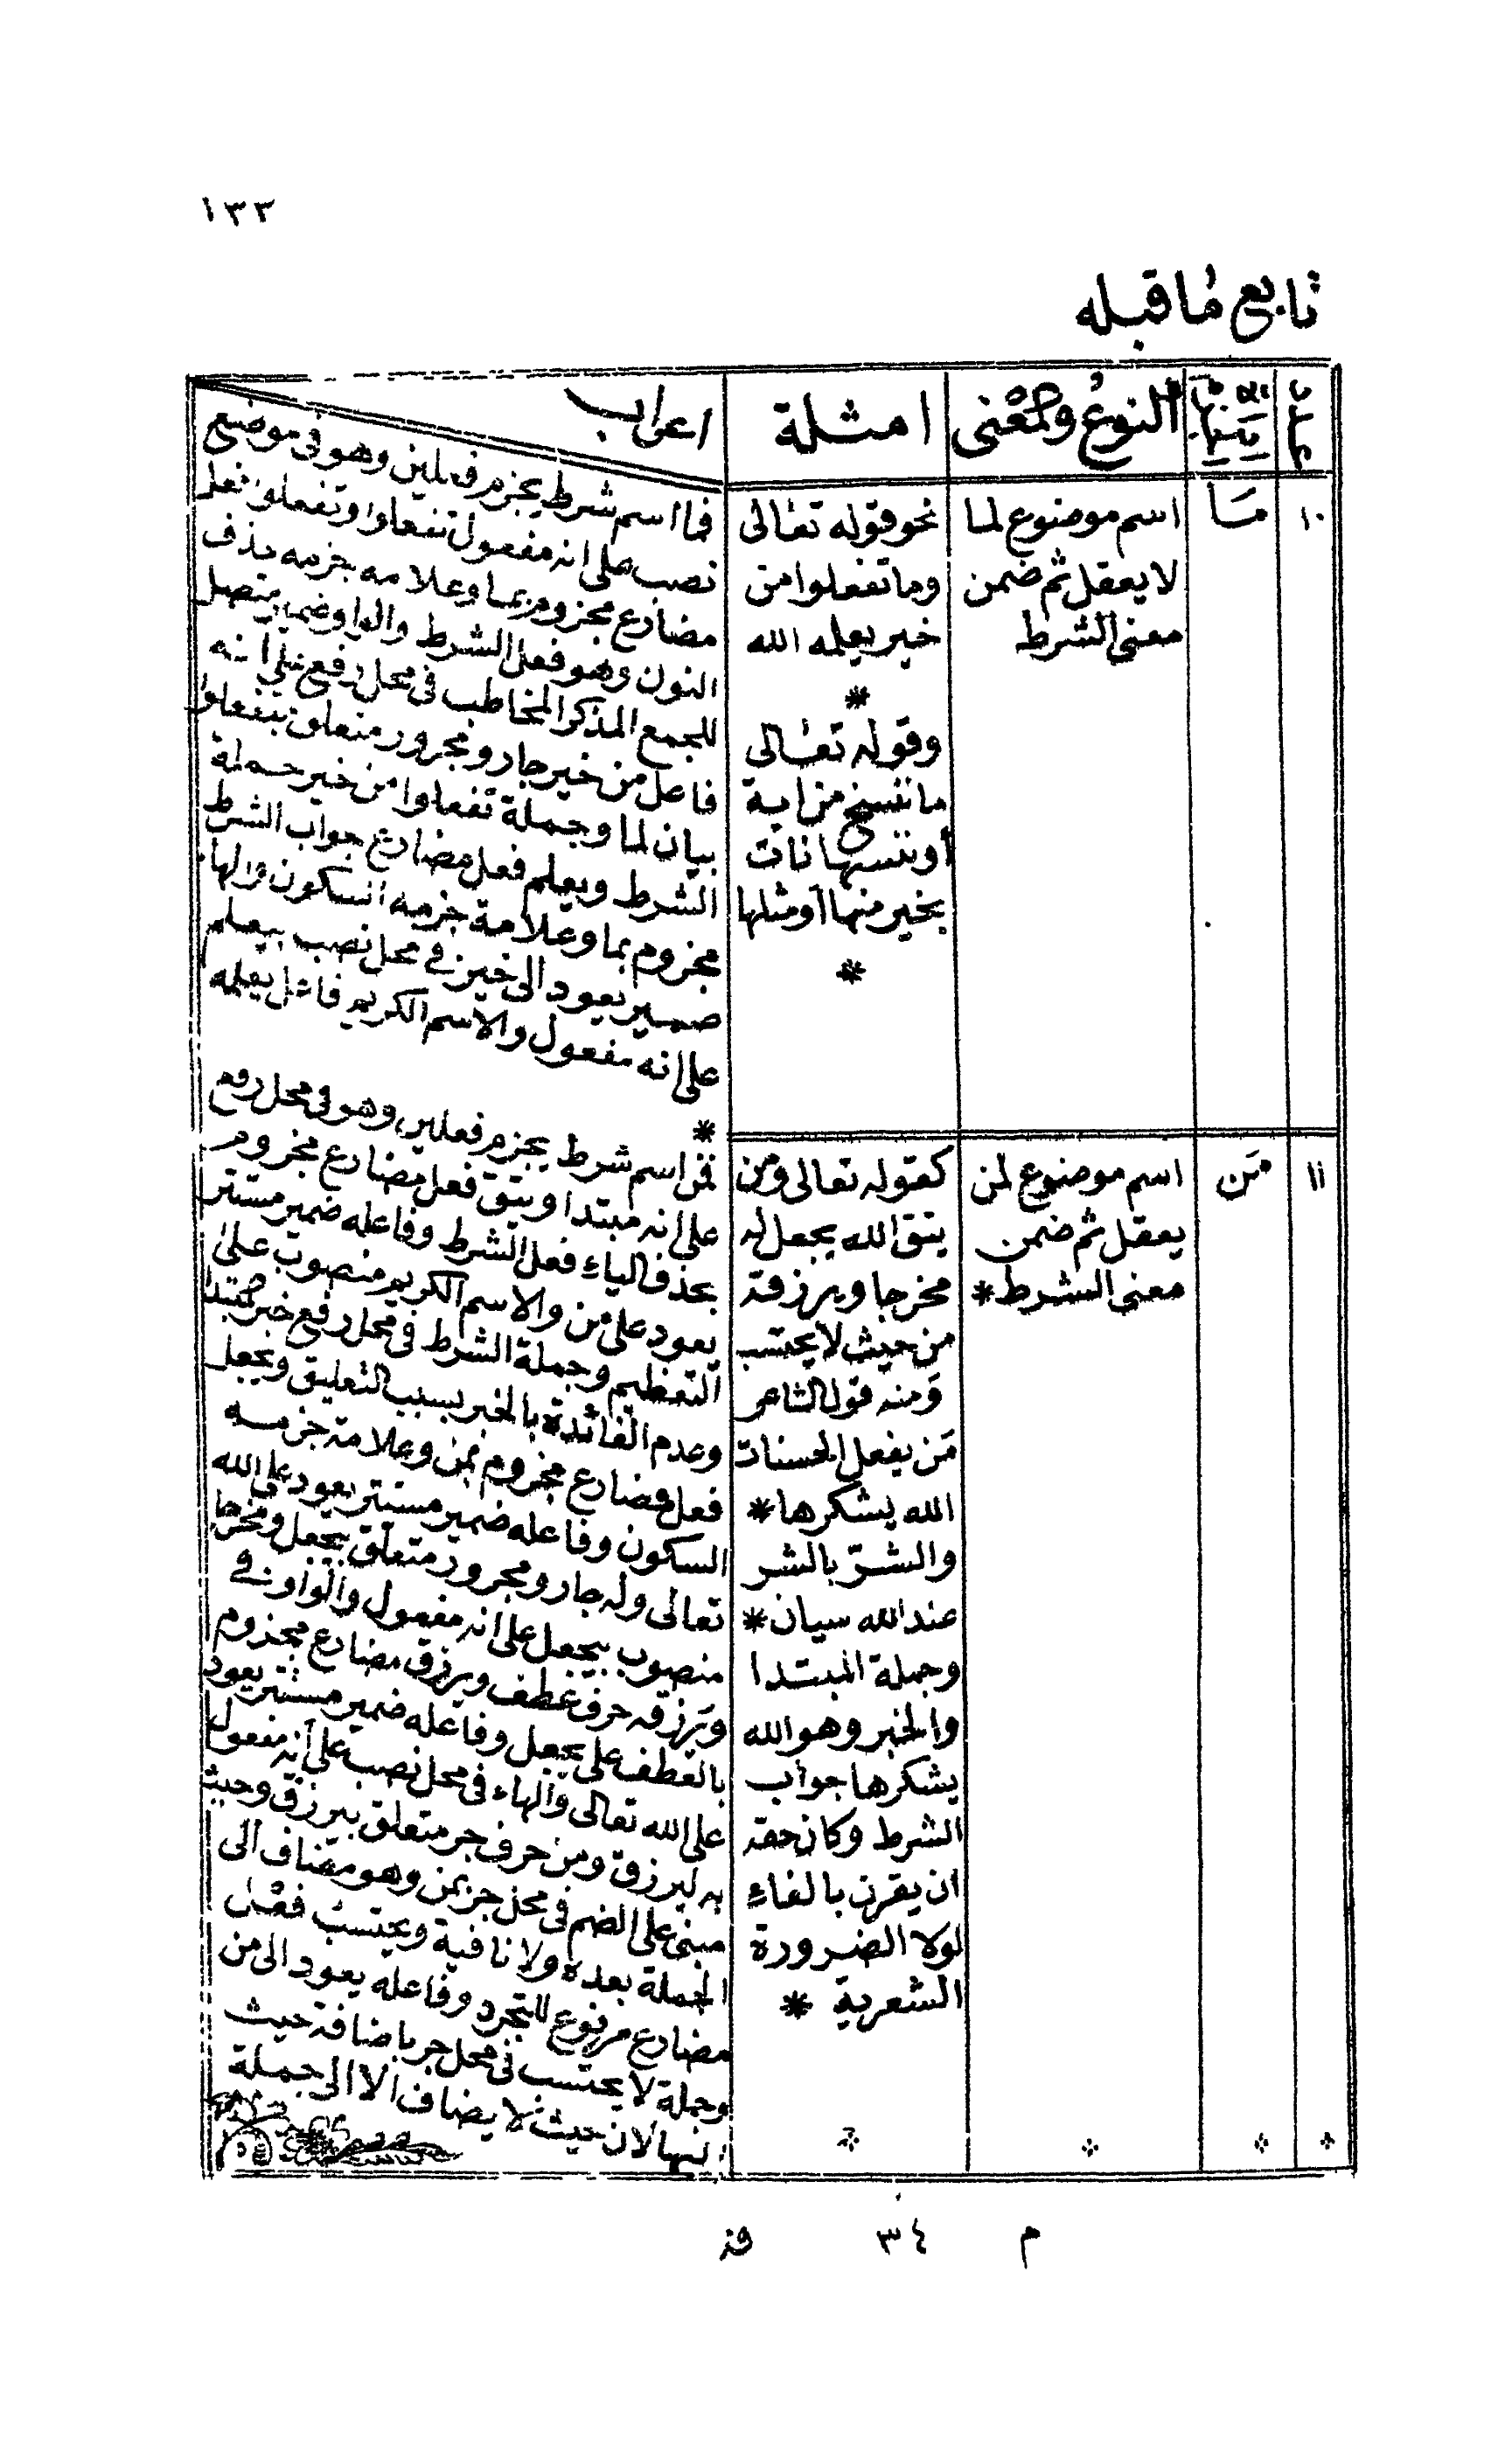 ١٣٣
تابع ما قبله
النوع والمعنى
امثلة
اعراب
١٠
ما
اسم موضوع لما
لا يعقل ثم ضمن
معنى الشرط
نحو قوله تعالى
وما تفعلوا من
خير يعلمه الله
*
وقوله تعالى
ما ننسخ من اية
أو ننسها نات
بخير منها أو مثلها
*
فما اسم شرط يجزم فعلين وهو فى موضع
نصب على انه مفعول تفعلوا وتفعلوا فعل
مضارع مجزوم بما وعلامه جزمه حذف
النون وهو فعل الشرط والواو ضمير متصل
للجمع المذكر المخاطب فى محل رفع على انه
فاعل من خير جار ومجرور متعلق بتفعلوا
بيان لما وجملة تفعلوا من خير جملة
الشرط ويعلم فعل مضارع جواب الشرط
مجزوم بما وعلامة جزمه السكون والهاء
ضمير يعود الى خير فى محل نصب بيعلم
على انه مفعول والاسم الكريم فاعل يعلمه
*
١١
مَن
اسم موضوع لمن
يعقل ثم ضمن
معنى الشرط *
كقوله تعالى ومن
يتق الله يجعل له
مخرجا ويرزقه
من حيث لا يحتسب
ومنه قول الشاعر
مَن يفعل الحسنات
الله يشكرها *
والشرّ بالشر
عند الله سيان *
وجملة المبتدا
والخبر وهو الله
يشكرها جواب
الشرط وكان حقه
ان يقرن بالفاء
لولا الضرورة
الشعرية *
فمن اسم شرط يجزم فعلين وهو فى محل رفع
على انه مبتدا ويتق فعل مضارع مجزوم
بحذف الياء فعل الشرط وفاعله ضمير مستتر
يعود على من والاسم الكريم منصوب على
التعظيم وجملة الشرط فى محل رفع خبر المبتدا
وعدم الفائدة بالخبر بسبب التعليق ويجعل
فعل مضارع مجزوم بمن وعلامة جزمه
السكون وفاعله ضمير مستتر يعود على الله
تعالى وله جار ومجرور متعلق بيجعل ومخرجا
منصوب بيجعل على انه مفعول والواو فى
ويرزقه حرف عطف ويرزق مضارع مجزوم
بالعطف على يجعل وفاعله ضمير مستتر يعود
على الله تعالى والهاء فى محل نصب على أنه مفعول
به ليرزق ومن حرف جر متعلق بيرزق وحيث
مبنى على الضم فى محل جر بمن وهو مضاف الى
الجملة بعده ولا نافية ويحتسب فعل
مضارع مرفوع للتجرد وفاعله يعود الى من
وجملة لا يحتسب فى محل جر باضافة حيث
اليها لان حيث لا يضاف الا الى جملة
م ٣٤